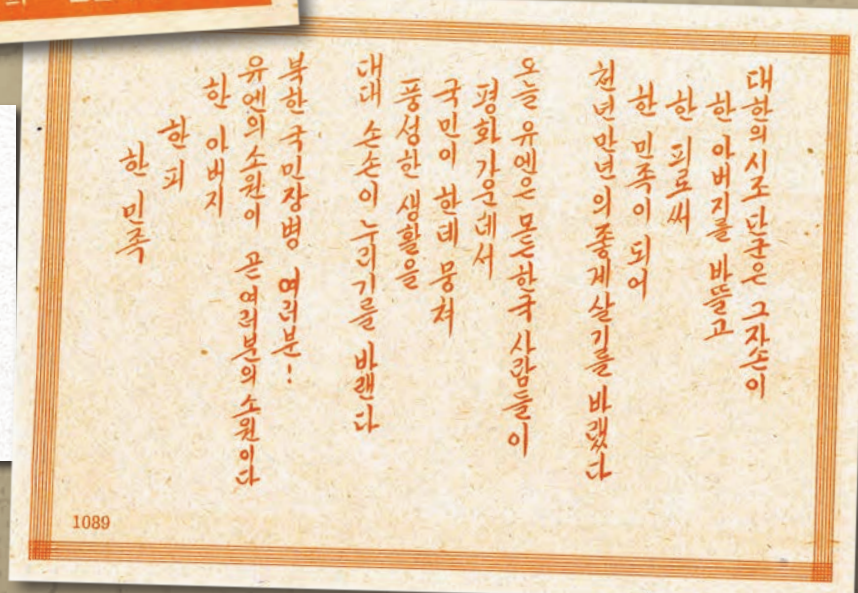 대한의시조 단군은 그자손이
한 아버지를 바뜰고
한 피로써
한 민족이 되어
천년만년의 좋게살기를 바랬다
오늘 유엔은 모든한국 사람들이
평화 가운데서
국민이 한데 뭉쳐
풍성한 생활을
대대 손손이 누리기를 바랜다
북한 국민장병 여러분!
유엔의소원이 곧여러분의소원이다
한 아버지
한 피
한 민족
1089